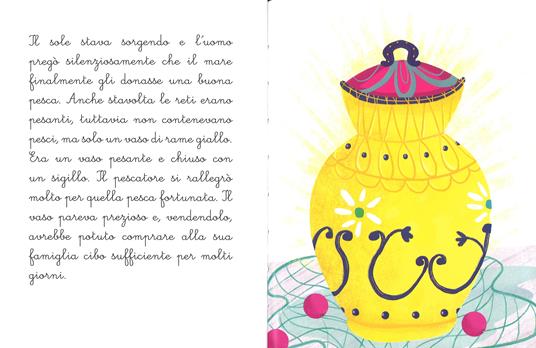 Il sole stava sorgendo e l'uomo
pregò silenziosamente che il mare
finalmente gli donasse una buona
pesca. Anche stavolta le reti erano
pesanti, tuttavia non contenevano
pesci, ma solo un vaso di rame giallo.
Era un vaso pesante e chiuso con
un sigillo. Il pescatore si rallegrò
molto per quella pesca fortunata. Il
vaso pareva prezioso e, vendendolo,
avrebbe potuto comprare alla sua
famiglia cibo sufficiente per molti
giorni.